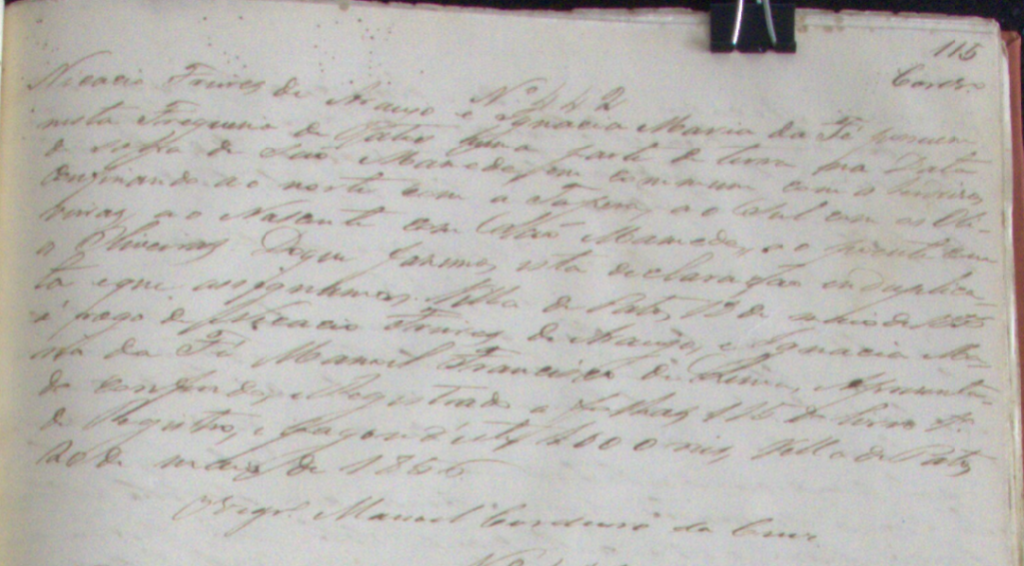 115
Nº 442
Nicacio Torres de Araujo e Ignacia Maria da Fé possuem
nesta Freguesia de Patos huma parte de terra na Data
de São Mamede em commum com os
confinando ao norte com a ao Sul com os Oli-
veiras, ao Nascente com São Mamede, e ao puente com
os Oliveiras. Do que fazemos esta declaração em duplica-
ta e que assignamos. Villa de Patos 12 de maio de 1856
a rogo de Nicacio Torres de Araujo, e Ignacia Ma-
ria da Fé Manoel Francisco de Lima. Apresenta-
do e Registrado a folhas 115 do livro 1º
de Registro, e pagou reis, Villa de Patos
20 de de 1856
O Vigrº. Manoel Cordeiro da Cruz